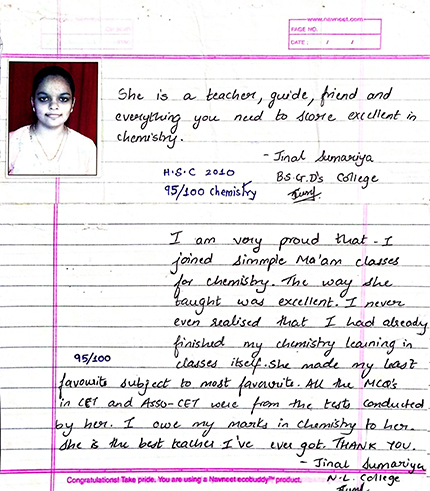 www.navneet.com
PAGE NO.
DATE : / /
She is a teacher, guide, friend and
everything you need to score excellent in
chemistry.
- Jinal Sumariya
H.S.C 2010
B.S.G.D's College
95/100 chemistry
I am very proud that I
joined simmple Ma'am classes
for chemistry. The way she
taught was excellent. I never
even realised that I had already
finished my chemistry learning in
95/100
classes itself. She made my least
favourite subject to most favourite. All the MCQ's
in CET and Asso-CET were from the tests conducted
by her. I owe my marks in chemistry to her.
She is the best teacher I've ever got. THANK YOU.
- Jinal Sumariya
Congratulations! Take pride. You are using a Navneet ecobuddy™ product.
N.L. College